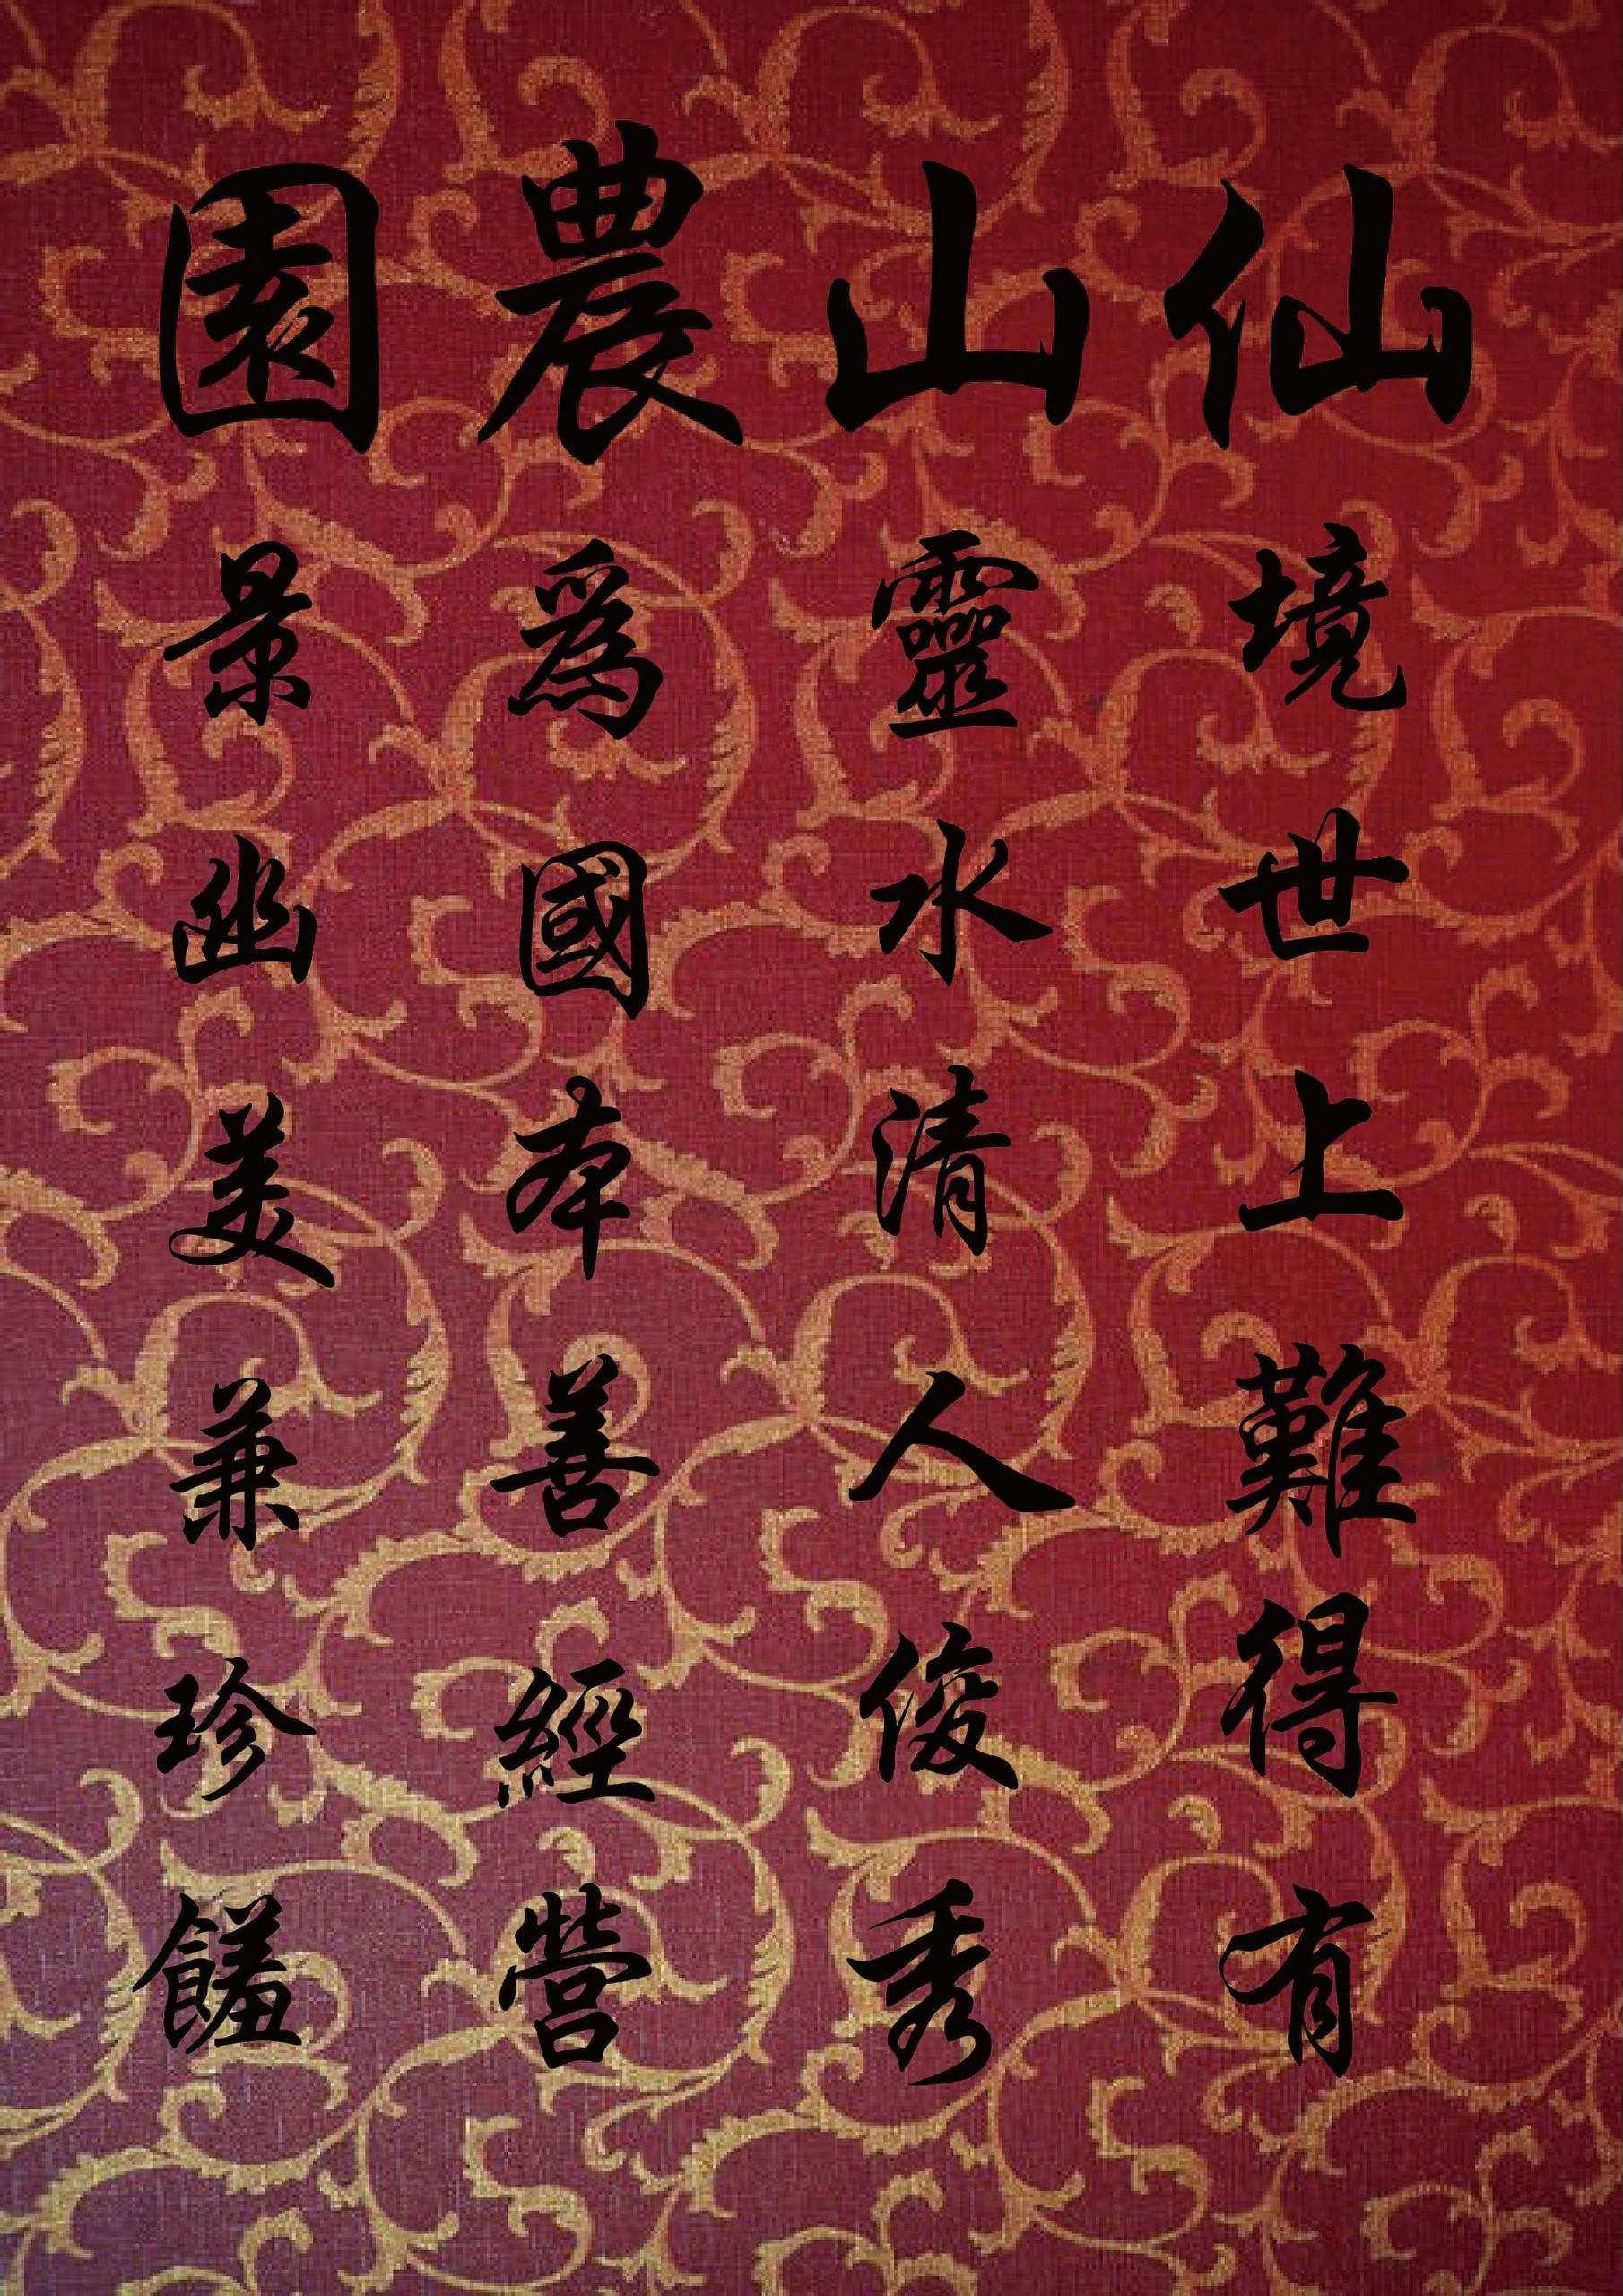 仙境世上難得有
山靈水清人俊秀
農為國本善經營
園景幽美兼珍饈